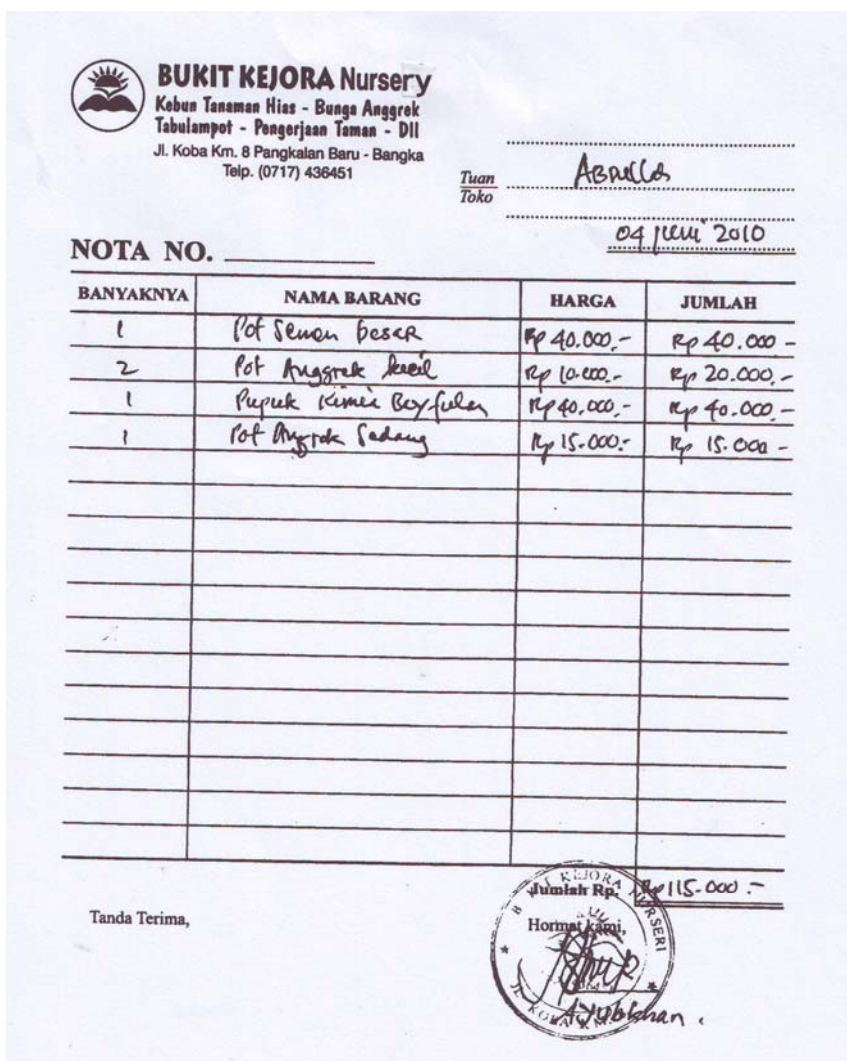 BUKIT KEJORA Nursery
Kebun Tanaman Hias - Bunga Anggrek
Tabulampot - Pengerjaan Taman - Dll
Jl. Koba Km. 8 Pangkalan Baru - Bangka
Telp. (0717) 436451
Tuan
Toko
04 Juni 2010
NOTA NO.
BANYAKNYA NAMA BARANG HARGA JUMLAH
1 Pot Semen besar Rp 40.000,- Rp 40.000 -
2 Pot Anggrek kecil Rp 10.000,- Rp 20.000,-
1 Pupuk Kimia Rp 40.000,- Rp 40.000,-
1 Pot Anggrek Sedang Rp 15.000,- Rp 15.000 -
Jumlah Rp. Rp 115.000,-
Tanda Terima, Hormat kami,
BUKIT KEJORA NURSERI
Ayubkhan.